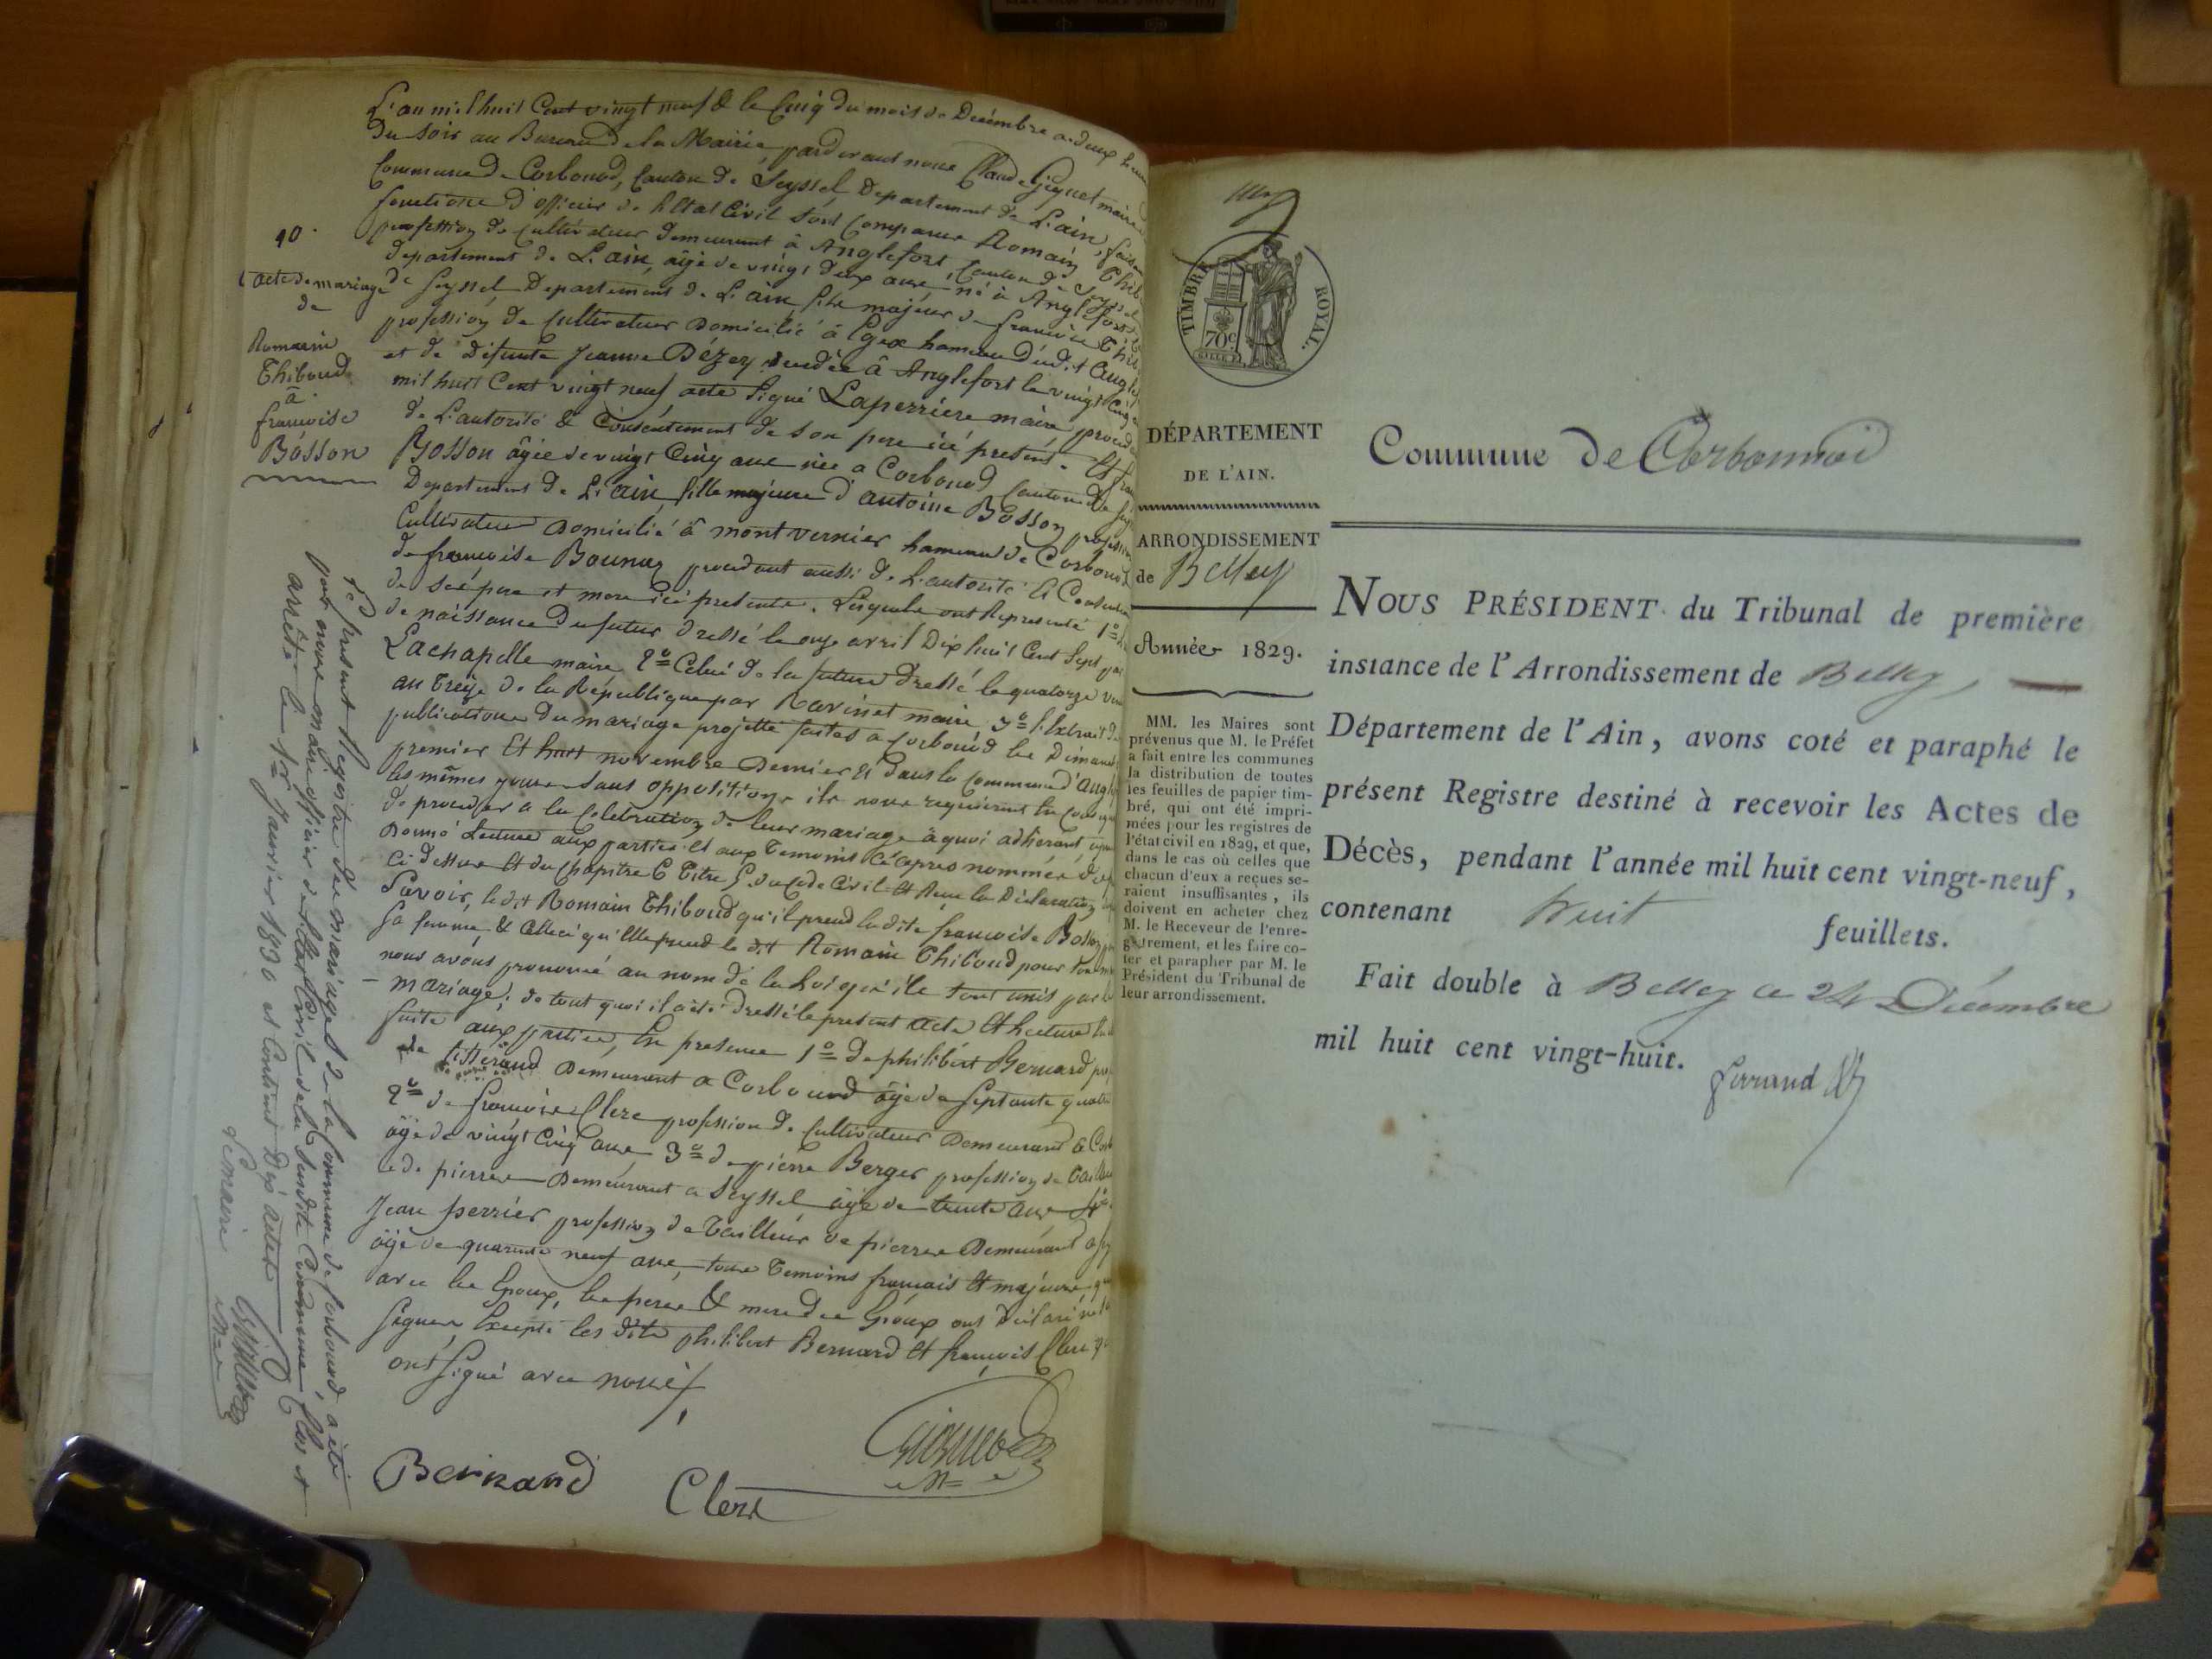 L'an mil huit Cent vingt neuf & le Cinq du mois de Décembre a deux heures
du soir au Bureau de la Mairie, pardevant nous Claude Gignet maire
Commune de Corbonod, Canton de Seyssel, Departement de L'ain, faisant
fonctions d'officier de L'Etat Civil sont Comparus Romain Thib
profession de Cultivateur demeurant à Anglefort, Canton de Seyssel
departement de L'ain, âgé de vingt deux ans, né à Anglefort
de Seyssel, Departement de L'ain, fils majeur de francois Thib
profession de Cultivateur Domicilié à hameau dud.t Anglef
et de Défunte Jeanne Dézey décédée à Anglefort le vingt Cinq
mil huit Cent vingt neuf acte Signé Laperriere maire, procéd
de L'autorité & Consentement de son pere ici présent. Et fran
Bosson âgée de vingt Cinq ans née a Corbonod Canton de Sey
Departement de L'ain, fille majeure d'antoine Bosson profession
Cultivateur Domicilié à montvernier hameau de Corbonod
de françoise Bounaz procedant aussi de L'autorité & Consentem
de ses pere et mere ici présents. Lesquels ont Representé 1º
de naissance du futur dressé le onze avril Dix huit Cent Sept par
Lachapelle maire 2º Celui de la future dressé le quatorze
an treize de la République par Ravinet maire 3º l'Extrait d
publications du mariage projetté faites a Corbonod les Dimanch
premier Et huit novembre Dernier Et dans la Commune d'Anglef
les mêmes jours sans oppositions, ils nous requièrent En Conséq
de procéder a la Célébration de leur mariage à quoi adhérant
Donné Lecture aux parties et aux Temoins Ci apres nommés
Ci dessus Et du Chapitre 6 Titre 5 du Code Civil Et Recu la Déclaration
Savoir, ledit Romain Thiboud qu'il prend ladite françoise Bosson
sa femme, & Celle ci qu'Elle prend le dit Romain Thiboud pour son
nous avons prononcé au nom de la Loi qu'ils sont unis par le
mariage; de tout quoi il a été dressé le present acte Et Lecture
suite aux parties, En presence 1º de philibert Bernard pro
de tisserand Demeurant a Corbonod âgé de septante quatre
2º de francois Clerc profession de Cultivateur Demeurant à Corb
âgé de vingt Cinq ans 3º de pierre Berger profession de Taille
de pierres Demeurant a Seyssel âgé de trente ans 4º
Jean perrier profession de Tailleur de pierres Demeurant a
âgé de quarante neuf ans, tous Temoins français Et majeurs
avec les Epoux, les peres & mere des Epoux ont Déclaré
signer, Excepté les dits philibert Bernard Et françois Clerc
ont signé avec nous
Bernard
Clerc
10.
acte de mariage
de
Romain
Thiboud
à
francoise
Bosson
Le présent Registre des mariages de la Commune de Corbonod, a été
par nous maire officier de l'Etat Civil de la susdite Commune Clos et
arrêté le 1er Janvier 1830 et Contient Dix actes
Le maire
TIMBRE ROYAL.
70c
DÉPARTEMENT
DE L'AIN.
ARRONDISSEMENT
de Belley
Année 1829.
MM. les Maires sont
prévenus que M. le Préfet
a fait entre les communes
la distribution de toutes
les feuilles de papier tim-
bré, qui ont été impri-
mées pour les registres de
l'état civil en 1829, et que,
dans le cas où celles que
chacun d'eux a reçues se-
raient insuffisantes, ils
doivent en acheter chez
M. le Receveur de l'enre-
gistrement, et les faire co-
ter et parapher par M. le
Président du Tribunal de
leur arrondissement.
Commune de Corbonnod
NOUS PRÉSIDENT du Tribunal de première
instance de l'Arrondissement de Belley,
Département de l'Ain, avons coté et paraphé le
présent Registre destiné à recevoir les Actes de
Décès, pendant l'année mil huit cent vingt-neuf,
contenant huit feuillets.
Fait double à Belley ce 24 Décembre
mil huit cent vingt-huit.